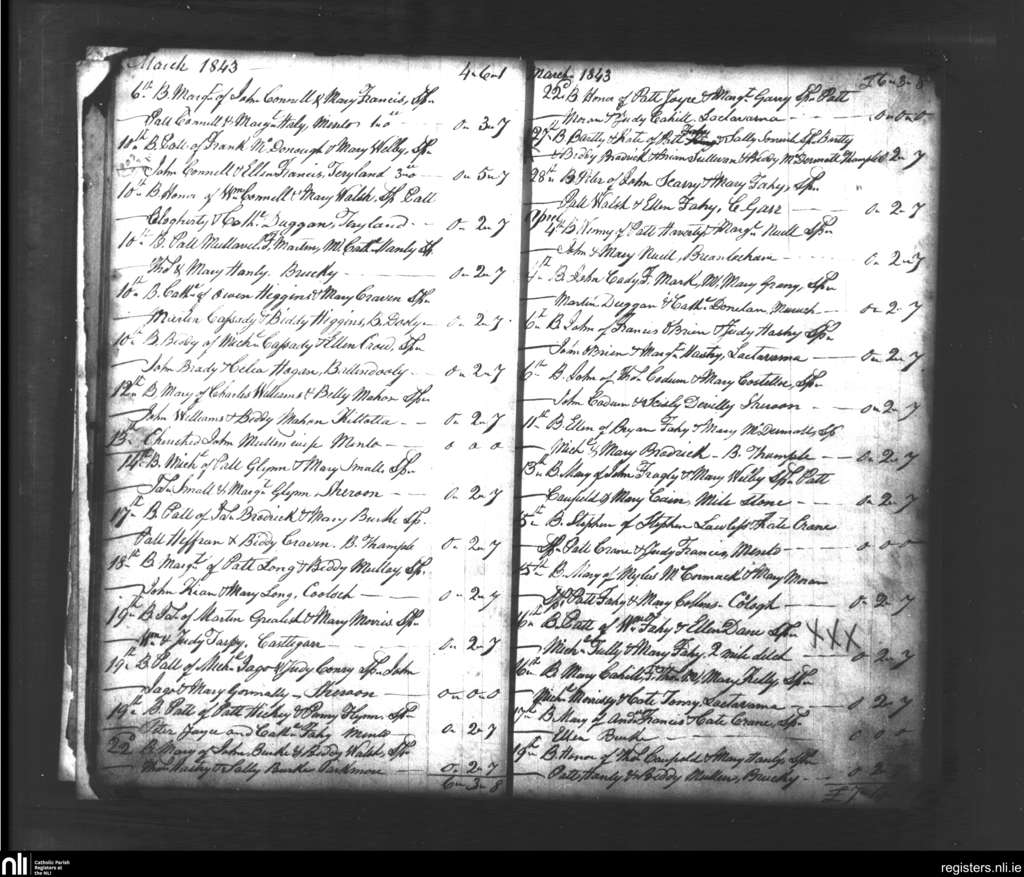 March 1843 4-6-1
6th B. Margt. of John Connell & Mary Francis, Sp.
Patt Connell & Margt. Haly, Menlo 0-3-7
10th B. Patt of Frank McDonough & Mary Welby, Sp.
John Connell & Ellen Francis, Teryland 0-5-7
10th B. Honor of Wm. Connell & Mary Walsh, Sp. Patt
Clogherty & Cath. Duggan, Teryland 0-2-7
10th B. Patt Mullowell F. Martin, M. Cath. Hanly Sp.
Thos. & Mary Hanly. Brucky 0-2-7
10th B. Cath. of Owen Higgins & Mary Craven Sp.
Martin Cassady & Biddy Higgins, B. Dooly 0-2-7
10th B. Biddy of Mich. Cassady & Ellen Creed, Sp.
John Brady & Celia Hogan, Bullindooly 0-2-7
12th B. Mary of Charles Williams & Betty Mahon Sp.
John Williams & Biddy Mahon Killotla 0-2-7
13th Churched John Mullen's wife Menlo 0 0 0
14th B. Michl. of Patt Glynn & Mary Smalle Sp.
Jas. Small & Margt. Glynn, Sheroon 0-2-7
17th B. Patt of Jas. Brodrick & Mary Burke Sp.
Patt Heffran & Biddy Craven. B. Thample 0-2-7
18th B. Margt. of Patt Long & Biddy Mulloy, Sp.
John Kean & Mary Long, Cooloch 0-2-7
19th B. Jas. of Martin Grealish & Mary Morris Sp.
Wm. & Judy Tarpy, Castlegarr 0-2-7
19th B. Patt of Mich. Jago & Judy Conry Sp. John
Jago & Mary Gormally, Sheroon 0-0-0
19th B. Patt of Patt Hickey & Penny Flynn Sp.
Peter Joyce and Cath. Fahy Menlo 0-2-7
22d B. Mary of John Burke & Biddy Walsh, Sp.
Hasty & Sally Burke Parkmore 0-2-7
6-3-8
March 1843 £6-3-8
22d B. Honor of Patt Joyce & Margt. Garry Sp. Patt
Moran & Judy Cahill, Lactarama 0-0-0
27th B. Bartly & Kate of Patt Fahy & Sally Sp. Bartly
& Biddy Bradick & Brian Sullivan & Biddy McDermott Thample 2-7
28th B. Peter of John Scarry & Mary Fahy, Sp.
Patt Walsh & Ellen Fahy, C. Garr 0-2-7
April
4th B. Henry of Patt Haverty & Margt. Nuell Sp.
John & Mary Nuell, Breanlochan 0-2-7
4th B. John Cody F. Mark, M. Mary Grany, Sp.
Martin Duggan & Cath. Donelan, Menuch 0-2-7
6th B. John of Francis O'Brien & Judy Hasty Sp.
John O'Brien & Margt. Hasty, Lactarama 0-2-7
6th B. John of Thos. Codum & Mary Costelloe, Sp.
John Codum & Sicily Devilly Sheroon 0-2-7
11th B. Ellen of Bryan Fahy & Mary McDermott, Sp.
Michl. & Mary Brodrick - B. Thample 0-2-7
13th B. Mary of John Fragly & Mary Welby Sp. Patt
Caufield & Mary Cain, Mile Stone 0-2-7
15th B. Stephen of Stephen Lawless & Kate Crane
Sp. Patt Crane & Judy Francis, Menlo 0-0-0
15th B. Mary of Myles McCormack & Mary Moran
Sp. Patt Fahy & Mary Collens. Cologh 0-2-7
16th B. Patt of Wm. Fahy & Ellen Dane Sp. XXX
Mich. Tully & Mary Fahy, 2 mile ditch 0-2-7
16th B. Mary Cahill, F. Thos. & M. Mary Kelly Sp.
Mich. Morissy & Cate Torny Lactarama 0 2-7
17th B. Mary of Andw. Francis & Cate Crane, Sp.
Ellen Burke 0 0 0
19th B. Honor of Thos. Caufield & Mary Hanly, Sp.
Patt Hanly & Biddy Mullens, Brucky 0 2
nli Catholic Parish Registers at the NLI
registers.nli.ie